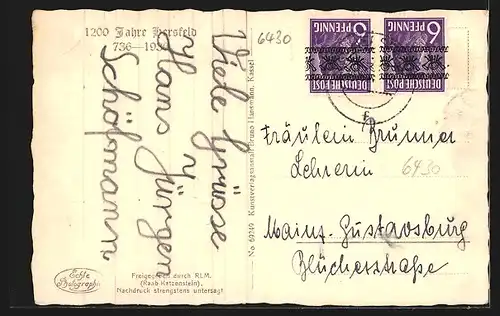 1200 Jahre Hersfeld
736-1936
6430
Viele Grüsse
v.
Hans Jürgen
Schöpmann.
No 60249 Kunstverlagsanstalt Bruno Hansmann, Kassel
6 PFENNIG
DEUTSCHE POST
6 PFENNIG
DEUTSCHE POST
Fräulein Brunner
Lehrerin
6430
Mainz-Gustavsburg
Blücherstraße
Echte
Photographie
Freigegeben durch RLM.
(Raab Katzenstein).
Nachdruck strengstens untersagt